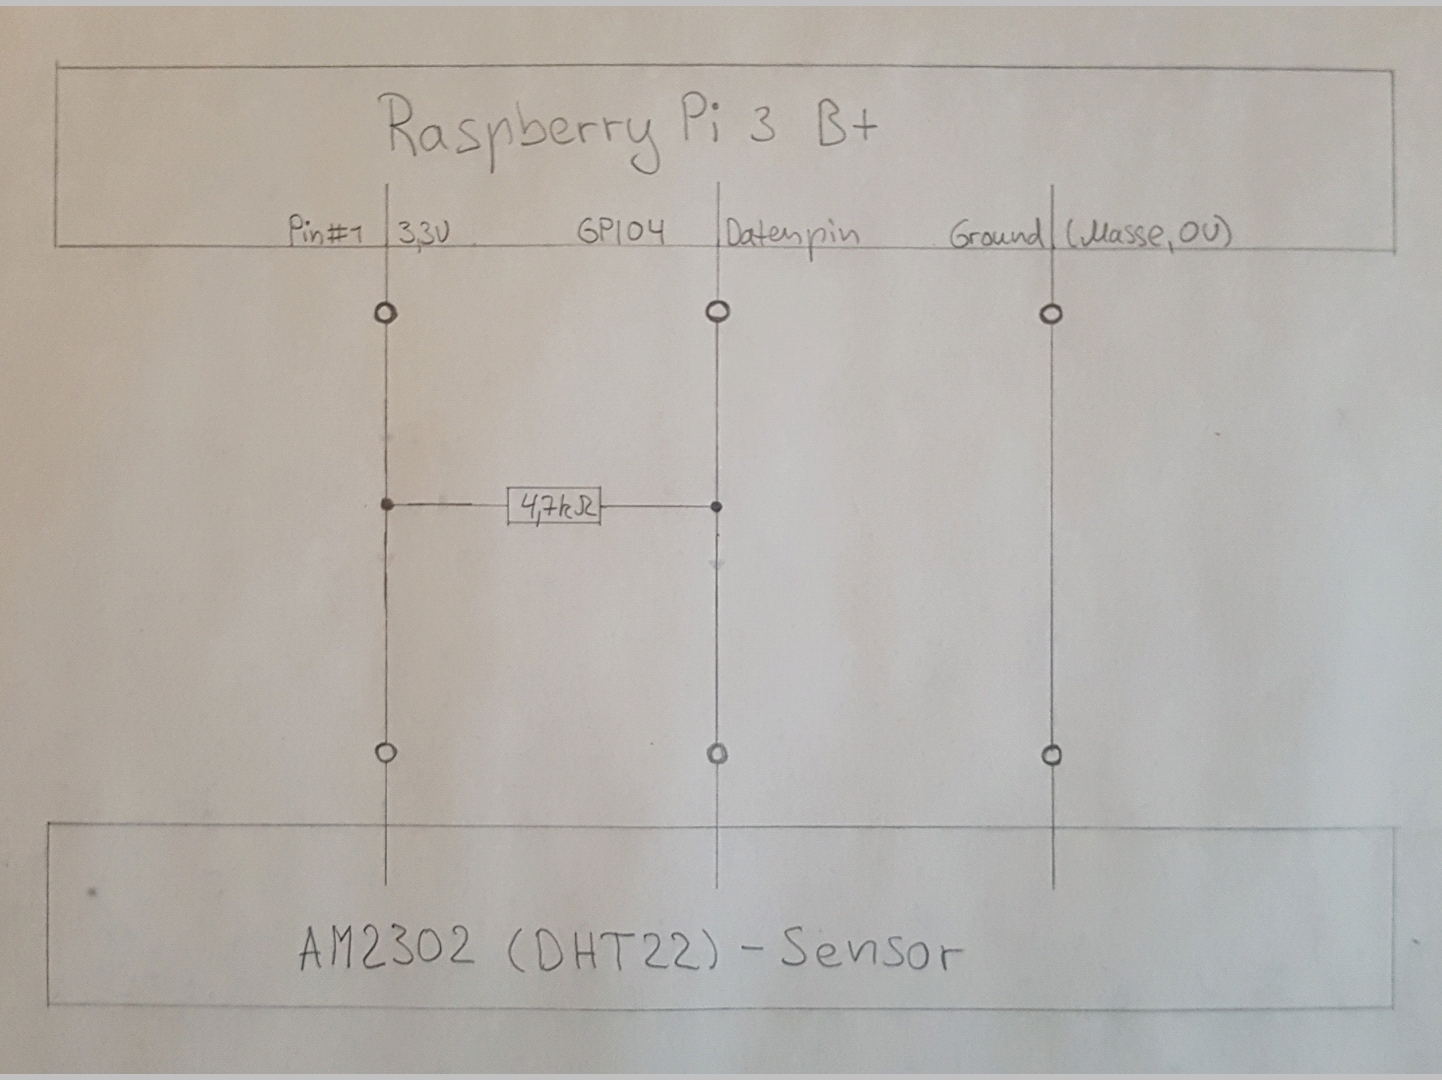 Raspberry Pi 3 B+
Pin#1 3,3V GPIO4 Datenpin Ground (Masse, 0V)
4,7kΩ
AM2302 (DHT22) - Sensor